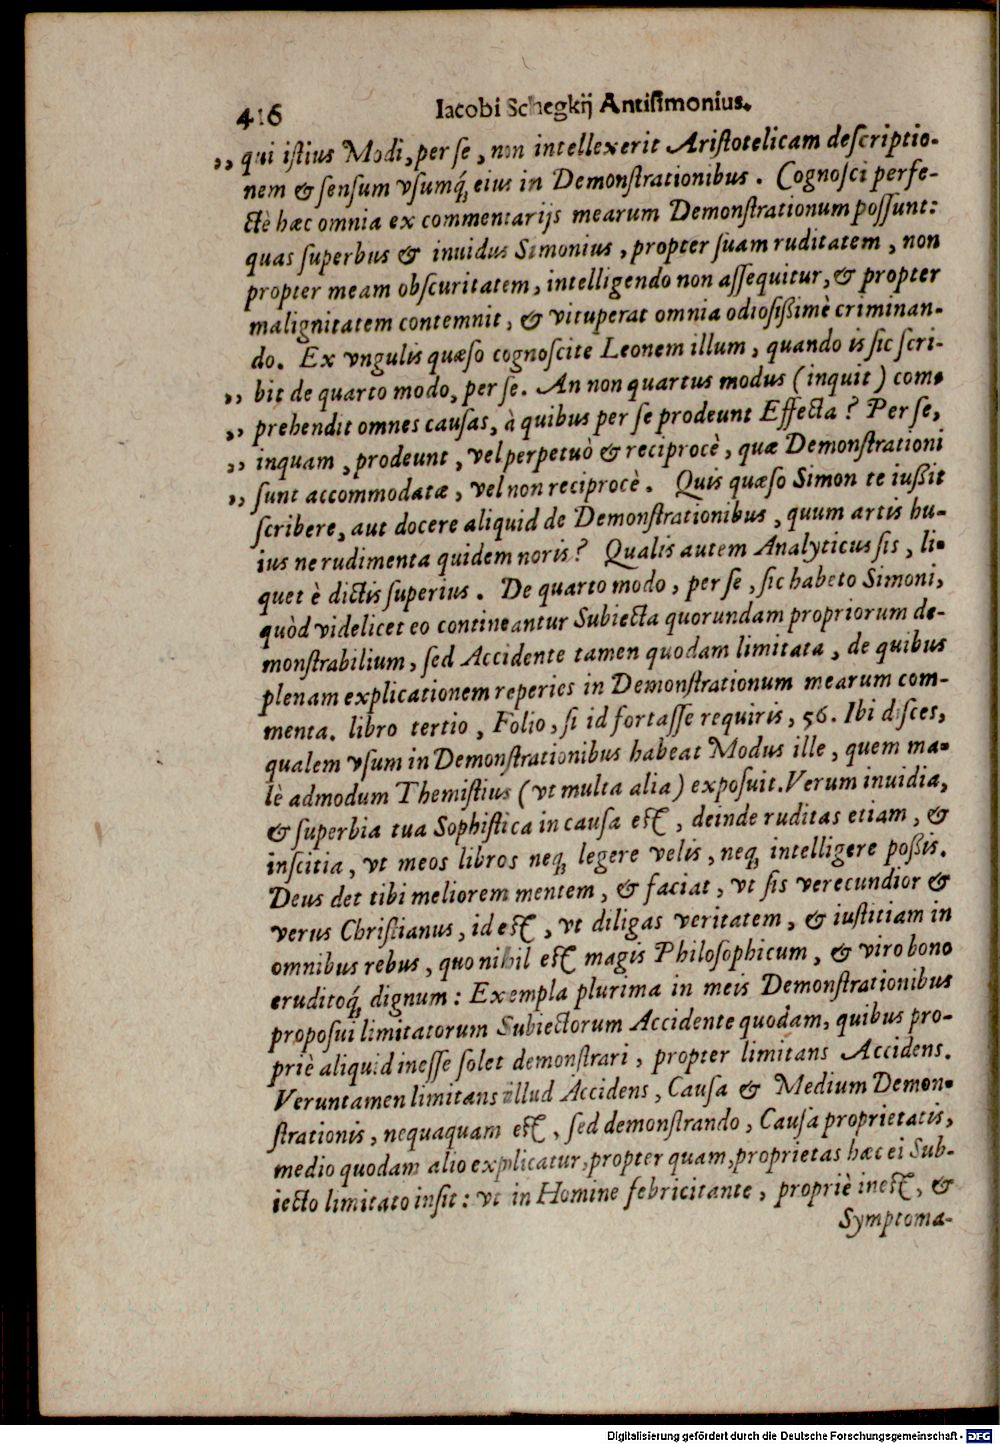 416 Iacobi Schegkij Antisimonius.
,, qui istius Modi, per se, non intellexerit Aristotelicam descriptio-
nem & sensum vsumq́; eius in Demonstrationibus. Cognosci perfe-
ctè hæc omnia ex commentarijs mearum Demonstrationum possunt:
quas superbus & inuidus Simonius, propter suam ruditatem, non
propter meam obscuritatem, intelligendo non assequitur, & propter
malignitatem contemnit, & vituperat omnia odiosißimè criminan-
do. Ex vngulis quæso cognoscite Leonem illum, quando is sic scri-
,, bit de quarto modo, per se. An non quartus modus (inquit) com-
,, prehendit omnes causas, à quibus per se prodeunt Effecta? Per se,
,, inquam, prodeunt, vel perpetuò & reciprocè, quæ Demonstrationi
,, sunt accommodatæ, vel non reciprocè. Quis quæso Simon te iußit
scribere, aut docere aliquid de Demonstrationibus, quum artis hu-
ius ne rudimenta quidem noris? Qualis autem Analyticus sis, li-
quet è dictis superius. De quarto modo, per se, sic habeto Simoni,
quòd videlicet eo contineantur Subiecta quorundam propriorum de-
monstrabilium, sed Accidente tamen quodam limitata, de quibus
plenam explicationem reperies in Demonstrationum mearum com-
menta. libro tertio, Folio, si id fortasse requiris, 56. Ibi disces,
qualem vsum in Demonstrationibus habeat Modus ille, quem ma-
lè admodum Themistius (vt multa alia) exposuit. Verum inuidia,
& superbia tua Sophistica in causa est, deinde ruditas etiam, &
inscitia, vt meos libros neq; legere velis, neq; intelligere poßis.
Deus det tibi meliorem mentem, & faciat, vt sis verecundior &
verus Christianus, id est, vt diligas veritatem, & iustitiam in
omnibus rebus, quo nihil est magis Philosophicum, & viro bono
eruditoq́; dignum: Exempla plurima in meis Demonstrationibus
proposui limitatorum Subiectorum Accidente quodam, quibus pro-
priè aliquid inesse solet demonstrari, propter limitans Accidens.
Veruntamen limitans illud Accidens, Causa & Medium Demon-
strationis, nequaquam est, sed demonstrando, Causa proprietatis,
medio quodam alio explicatur, propter quam, proprietas hæc ei Sub-
iecto limitato insit: vt in Homine febricitante, propriè inest, &
Symptoma-
Digitalisierung gefördert durch die Deutsche Forschungsgemeinschaft - DFG